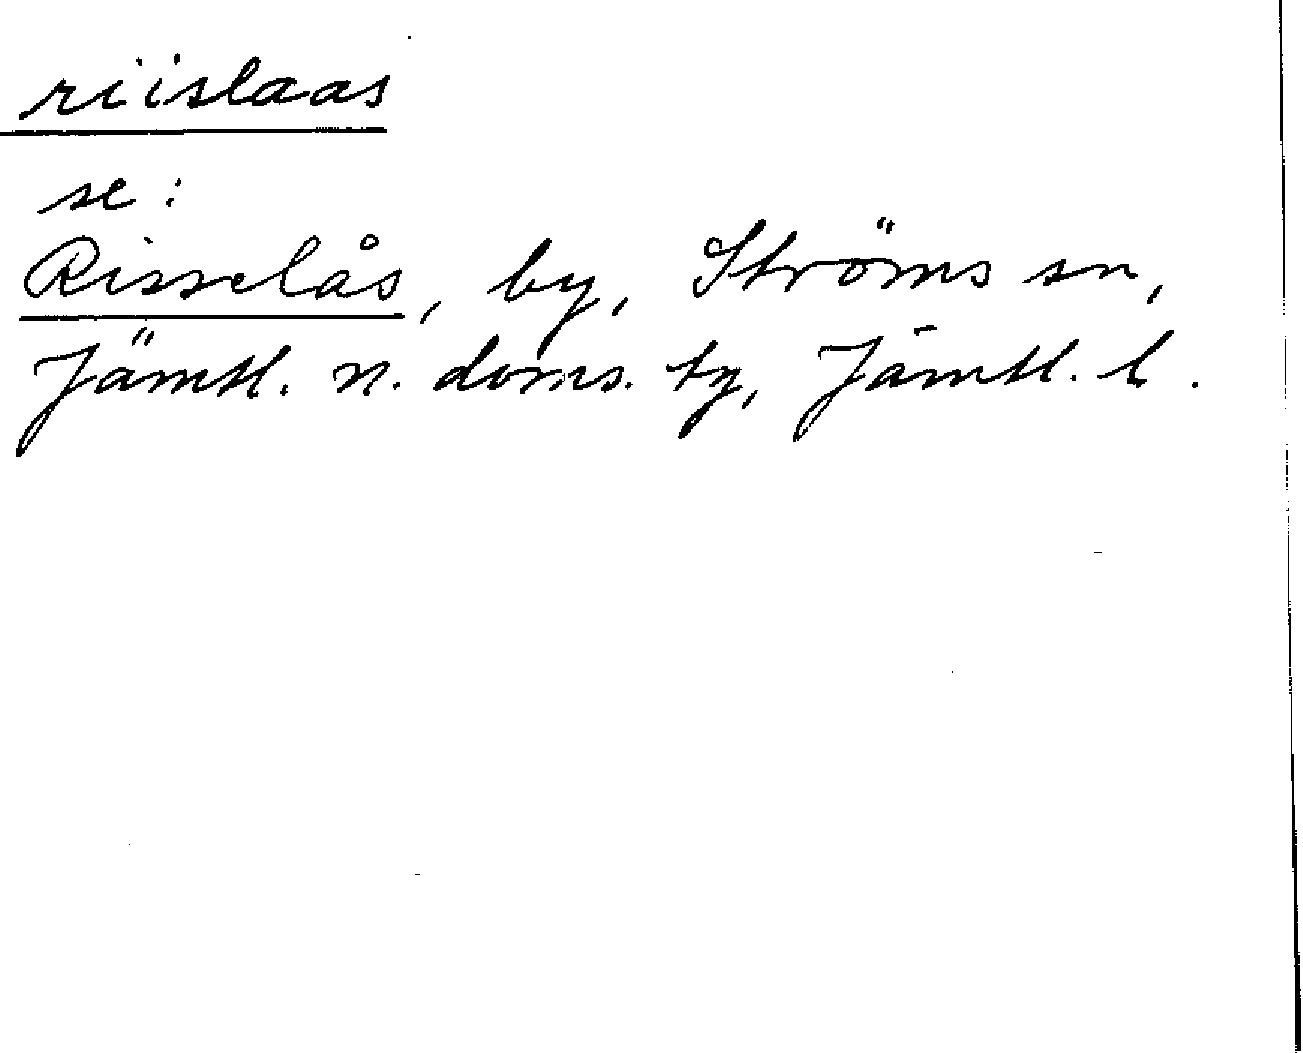 riislaas
se:
Risselås, by, Ströms sn,
Jämtl. n. doms. tg, Jämtl. l.